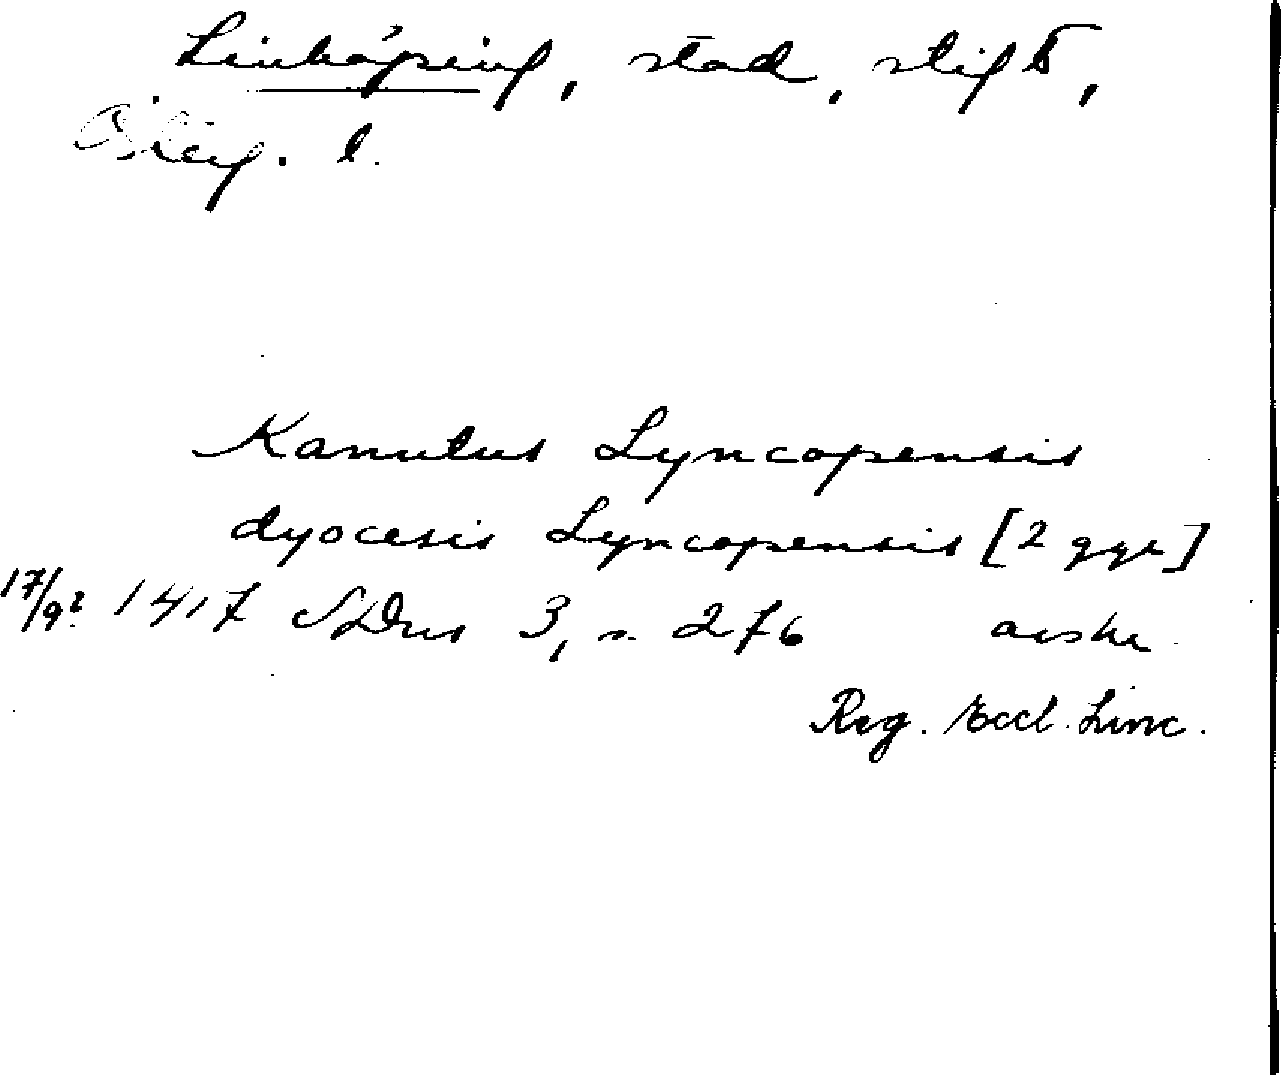 Linköping, stad, stift,
Österg. l.
Kanutus Lyncopensis
dyocesis Lyncopensis [2 ggr]
17/9? 1417 SDns 3, s. 276 avskr.
Reg. Eccl. Linc.